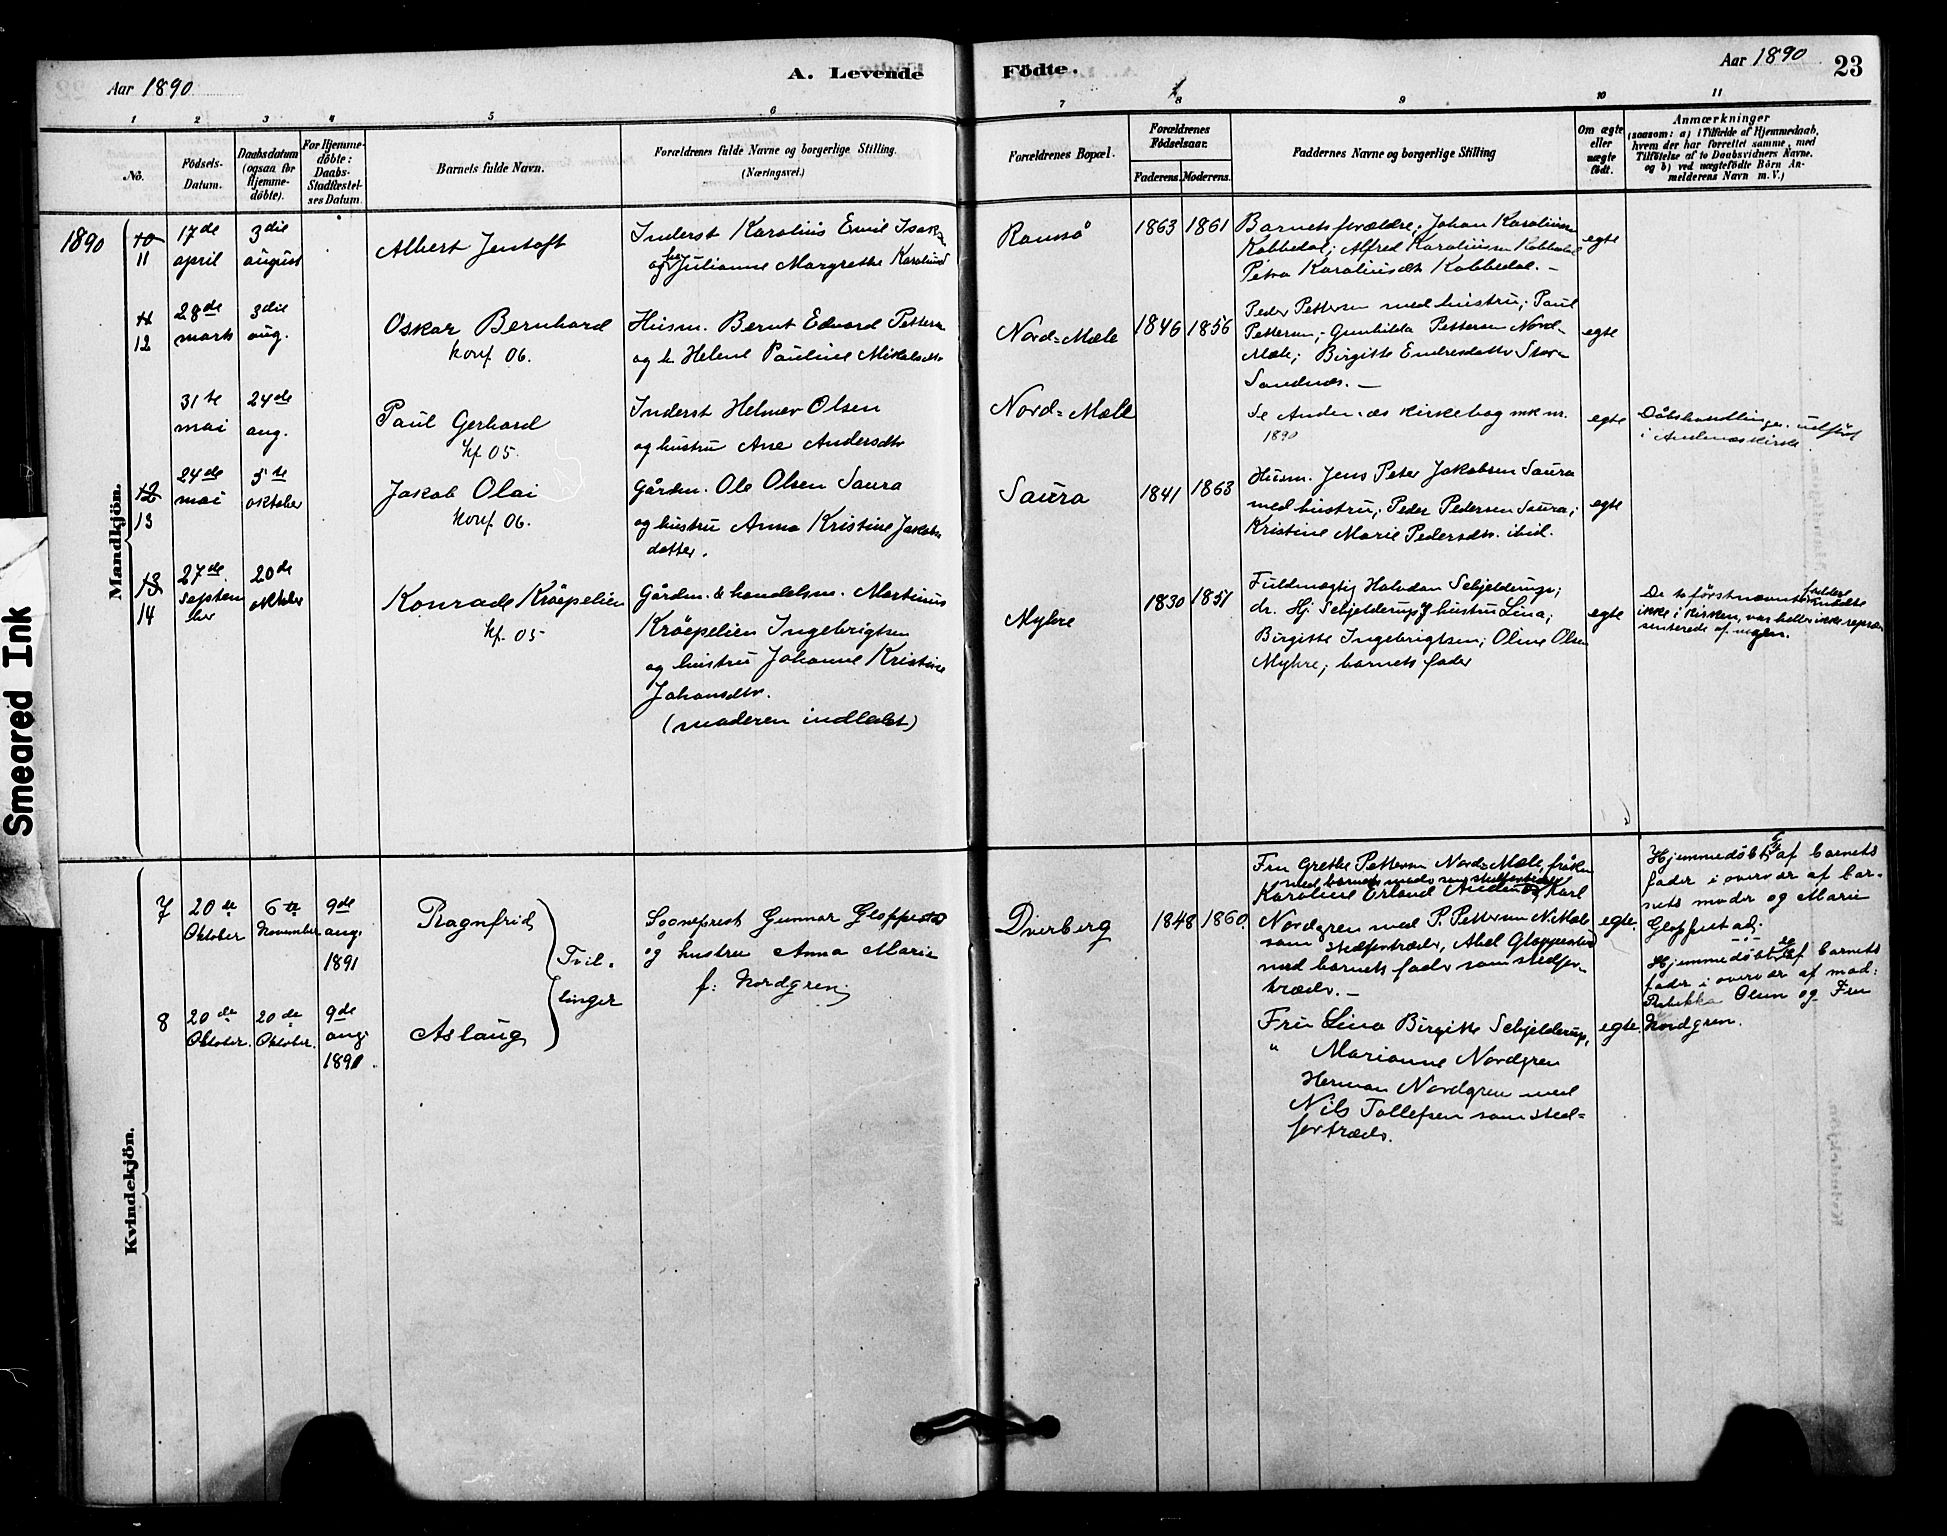 Aar 1890
A. Levende
Födte.
Aar 1890
23
1 2 3 4 5 6 7 8 9 10 11
No.
Födsels-
Datum.
Daabsdatum
(ogsaa for
Hjemme-
döbte).
For Hjemme-
döbte:
Daabs-
Stadfæstel-
ses Datum.
Barnets fulde Navn.
Forældrenes fulde Navne og borgerlige Stilling.
(Næringsvei.)
Forældrenes Bopæl.
Forældrenes
Födselsaar.
Faderens.
Moderens.
Faddernes Navne og borgerlige Stilling
Om ægte
eller
uægte
födt.
Anmærkninger
(saasom: a) i Tilfælde af Hjemmedaab,
hvem der har forrettet samme, med
Tilföielse af to Daabsvidners Navne.
og b) ved uægtefödte Börn An-
melderens Navn m. V.)
Mandkjön.
1890
10
11
17de
april
3die
august
Albert Jentoft
Inderst Karolius Emil Isaks
og Julianne Margrethe Karolius
Ramså
1863
1861
Barnets forældre; Johan Karoliussen
Kobbedal; Alfred Karoliussen Kobbedal
Petra Karoliusdtr Kobbedal. –
egte
11
12
28de
marts
3die
aug.
Oskar Bernhard
konf 06.
Husm. Bernt Edvard Petters
og h. Helene Pauline Mikalsdtr
Nord=Mæle
1846
1856
Peder Pettersen med hustru; Paul
Pettersen; Gunhilda Pettersen Nord-
Mæle; Birgitte Endresdattr Store
Sandnæs. –
egte
31te
mai
24de
aug.
Paul Gerhard
kf. 05.
Inderst Helmer Olsen
og hustru Ane Andersdtr
Nord=Mæle
Se Andenæs kirkebog
1890
egte
Dåbshandlingen udført
i Andenæs kirke
12
13
24de
mai
5te
oktober
Jakob Olai
konf 06.
Gårdm. Ole Olsen Saura
og hustru Anna Kristine Jakobs
datter.
Saura
1841
1863
Husm. Jens Peter Jakobsen Saura
med hustru; Peder Pedersen Saura;
Kristine Marie Pedersdtr. ibid.
egte
13
14
27de
septem
ber
20de
oktober
Konrade Kröepelien
kf. 05
Gårdm. & handelsm. Martinus
Kröepelien Ingebrigtsen
og hustru Johanne Kristine
Johansdtr.
(moderen indledet)
Myhre
1830
1851
Fuldmægtig Halvdan Schjelderup;
dr. Hj. Schjelderups hustru Lina;
Birgitte Ingebrigtsen; Oline Olsen
Myhre; barnets fader
egte
De to förstnævnte faddere mødte
ikke i kirken, var heller ikke repræ-
senterede af nogen.
Kvindekjön.
7
20de
Oktober
6te
November
9de
aug.
1891
Ragnfrid
Tvil-
linger
Sogneprest Gunnar Gloppestad
og hustru Anna Marie
f: Nordgren.
Dverberg
1848
1860.
Fru Grethe Pettersen Nord-Mæle, fröken
med barnets moder som stedfortræder
Karoline Erland Andenæs, Karl
Nordgren med P. Pettersen N.Mæle
som stedfortræder, Abel Gloppestad
med barnets fader som stedfor-
træder. –
egte.
Hjemmedøbt af barnets
fader i overvær af bar-
nets moder og Marie
Gloppestad.
8
20de
Oktober.
20de
Oktober.
9de
aug.
1890.
Aslaug
Fru Lina Birgitte Schjelderup,
" Marianne Nordgren
Herman Nordgren med
Nils Tollefsen som sted=
fortræder.
egte.
Hjemmedøbt af barnets
fader i overvær af mad:
Rebekka Olsen og Fru
Nordgren.
Smeared Ink